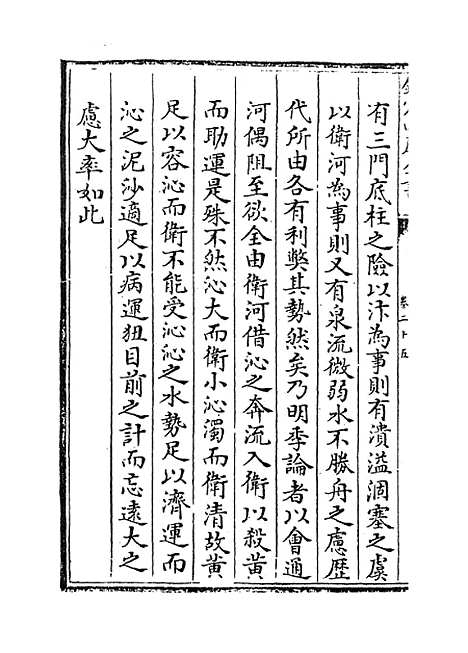 有三門底柱之險以汴為事則有潰溢涸塞之虞
以衛河為事則又有泉流微弱水不勝舟之慮歴
代所由各有利弊其勢然矣乃明季論者以會通
河偶阻至欲全由衛河借沁之奔流入衛以殺黄
而助運是殊不然沁大而衛小沁濁而衛清故黄
足以容沁而衛不能受沁沁之水勢足以濟運而
沁之泥沙適足以病運狃目前之計而忘逺大之
慮大率如此
卷二十五